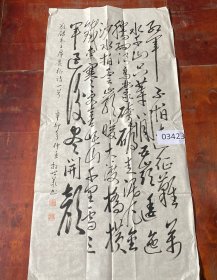 红军不怕远征难万
水千山只等闲五岭逶迤
腾细浪乌蒙磅礴走泥丸金
沙水拍云崖暖大渡桥横
铁索寒更喜岷山千里雪三
军过后尽开颜
毛主席长征诗一首
03423